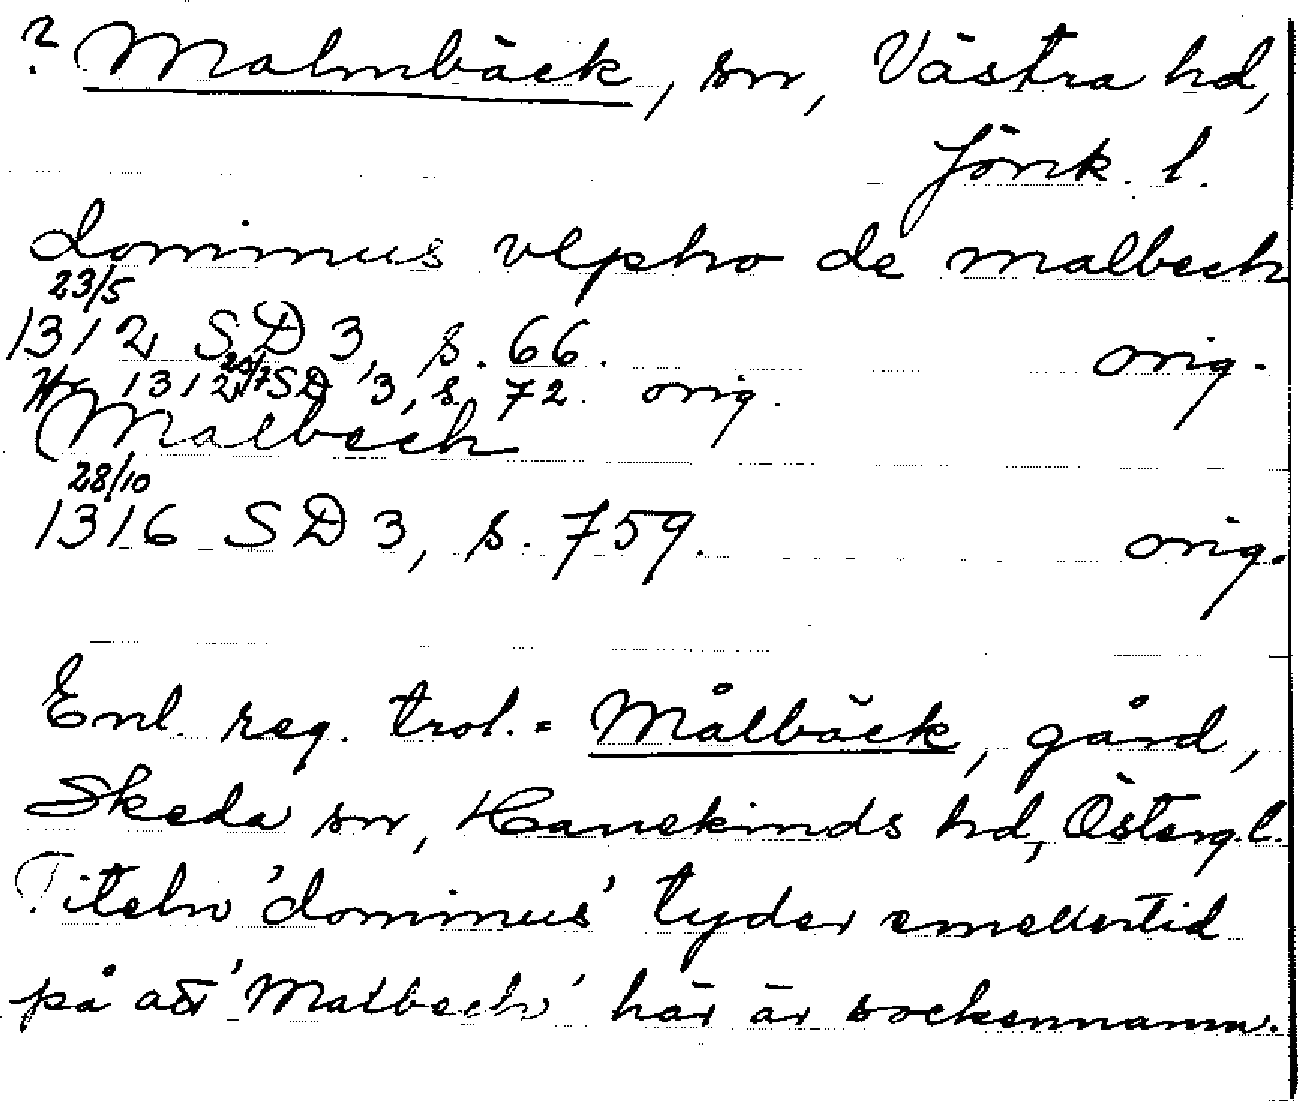 ? Malmbäck, sn, Västra hd,
Jönk. l.
dominus vlpho de malbech
23/5
1312 SD 3, s. 66. orig.
1312 /7 SD 3, s. 72. orig.
Malbech
28/10
1316 SD 3, s. 759. orig.
Enl. reg. trol. = Målbäck, gård,
Skeda sn, Hanekinds hd, Österg. l.
Titeln 'dominus' tyder emellertid
på att 'Malbech' här är sockennamn.